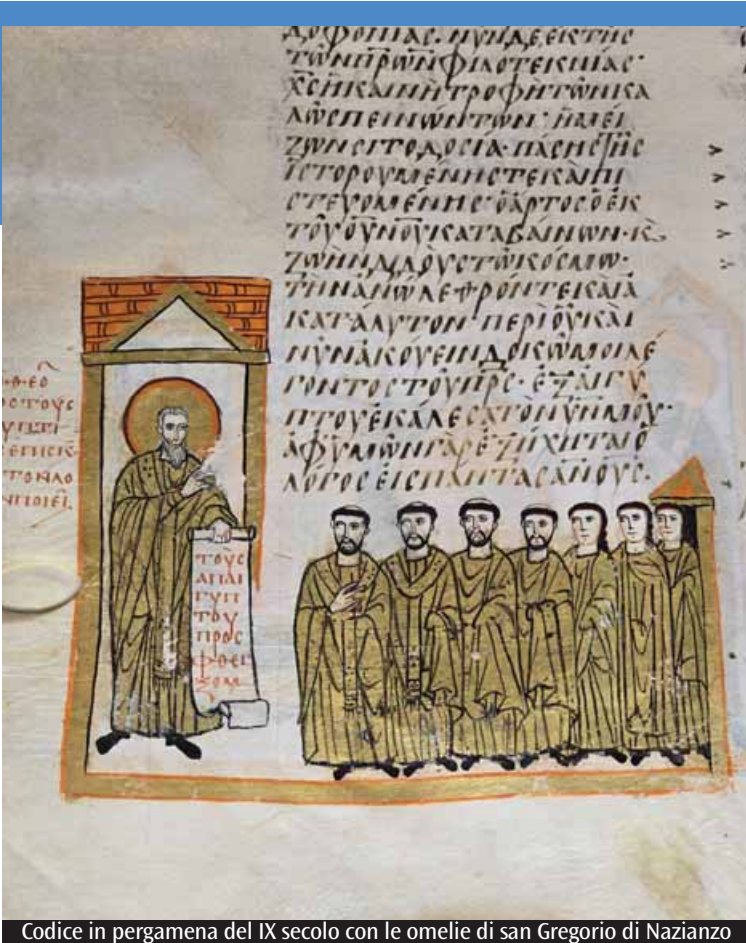 ΔΟΦΟΝΙΑϹ· ΝΥΝ ΔΕ ΕΚ ΤΗϹ
ΤΩΝ ΠΡΩΝ ΦΙΛΟΤΕΚΝΙΑϹ·
ΧϹ Η ΚΑΙΝΗ ΤΡΟΦΗ ΤΩΝ ΚΑ
ΛΩϹ ΠΕΙΝΩΝΤΩΝ· Η ΜΕΙ
ΖΩΝ ϹΙΤΟΔΟϹΙΑ· ΠΑϹΗϹ ΤΗϹ
ΙϹΤΟΡΟΥΜΕΝΗϹ ΤΕ ΚΑΙ ΠΙ
ϹΤΕΥΟΜΕΝΗϹ· Ο ΑΡΤΟϹ Ο ΕΚ
ΤΟΥ ΟΥΝΟΥ ΚΑΤΑΒΑΙΝΩΝ· Κ
ΖΩΗΝ ΔΙΔΟΥϹ ΤΩ ΚΟϹΜΩ·
ΤΗΝ ΑΝΩΛΕΘΡΟΝ ΤΕ ΚΑΙ Α
ΚΑΤΑΛΥΤΟΝ· ΠΕΡΙ ΟΥ ΚΑΙ
ΝΥΝ ΑΚΟΥΕΙΝ ΔΟΚΩ ΜΟΙ ΛΕ
ΓΟΝΤΟϹ ΤΟΥ ΠΡϹ· ΕΞ ΑΙΓΥ
ΠΤΟΥ ΕΚΑΛΕϹΑ ΤΟΝ ΥΝ ΜΟΥ·
ΑΦ ΥΜΩΝ ΓΑΡ ΕΞΗΧΗΤΑΙ Ο
ΛΟΓΟϹ ΕΙϹ ΠΑΝΤΑϹ ΑΝΟΥϹ.
ΘΕΟ
ΟϹ ΤΟΥϹ
ΥΠΤΙ
ΕΠΙϹΚ
ΤΟΝ ΛΟ
Ν ΠΟΙΕΙ.
ΤΟΥϹ
ΑΠ ΑΙ
ΓΥΠ
ΤΟΥ
ΠΡΟϹ
ΦΘΕΓ
ΞΟΜ
Codice in pergamena del IX secolo con le omelie di san Gregorio di Nazianzo